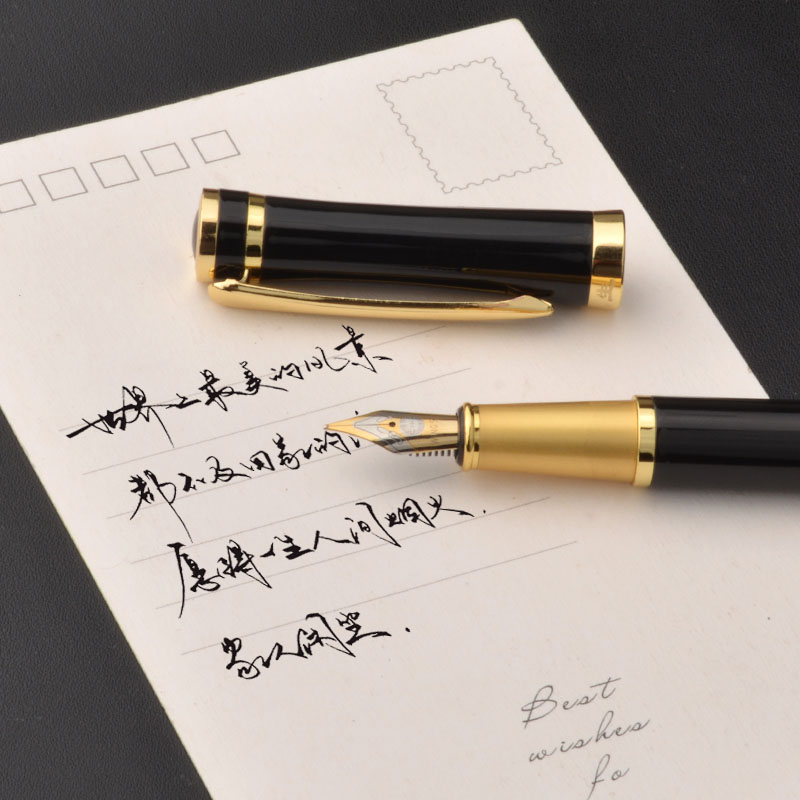 世界上最美的风景
都不及回家的
愿得一生人间烟火.
家人闲坐.
Best
wishes
fo